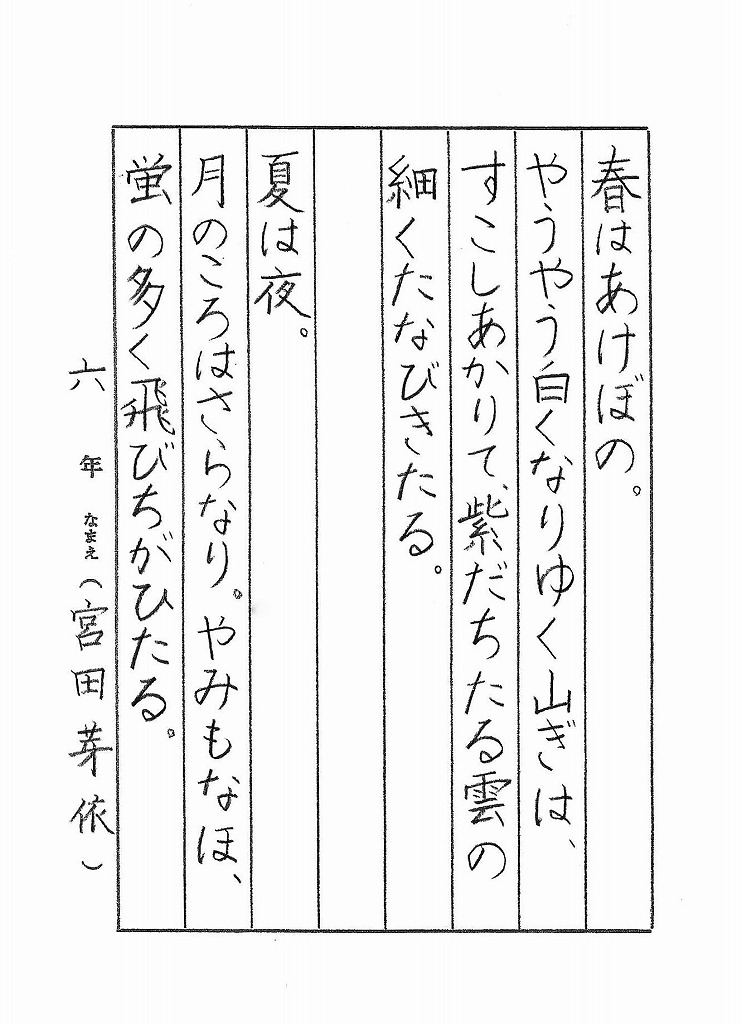 春はあけぼの。
やうやう白くなりゆく山ぎは、
すこしあかりて、紫だちたる雲の
細くたなびきたる。
夏は夜。
月のころはさらなり。やみもなほ、
蛍の多く飛びちがひたる。
六年 なまえ(宮田芽依)